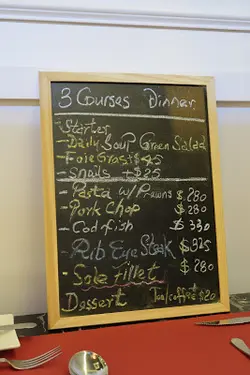 3 Courses Dinner
Starter
- Daily Soup Green Salad
- Foie Gras + $45
- Snails + $25
- Pasta w/ Prawns $280
- Pork Chop $280
- Codfish $330
- Rib Eye Steak $325
- Sole fillet $280
Dessert Tea/coffee $20